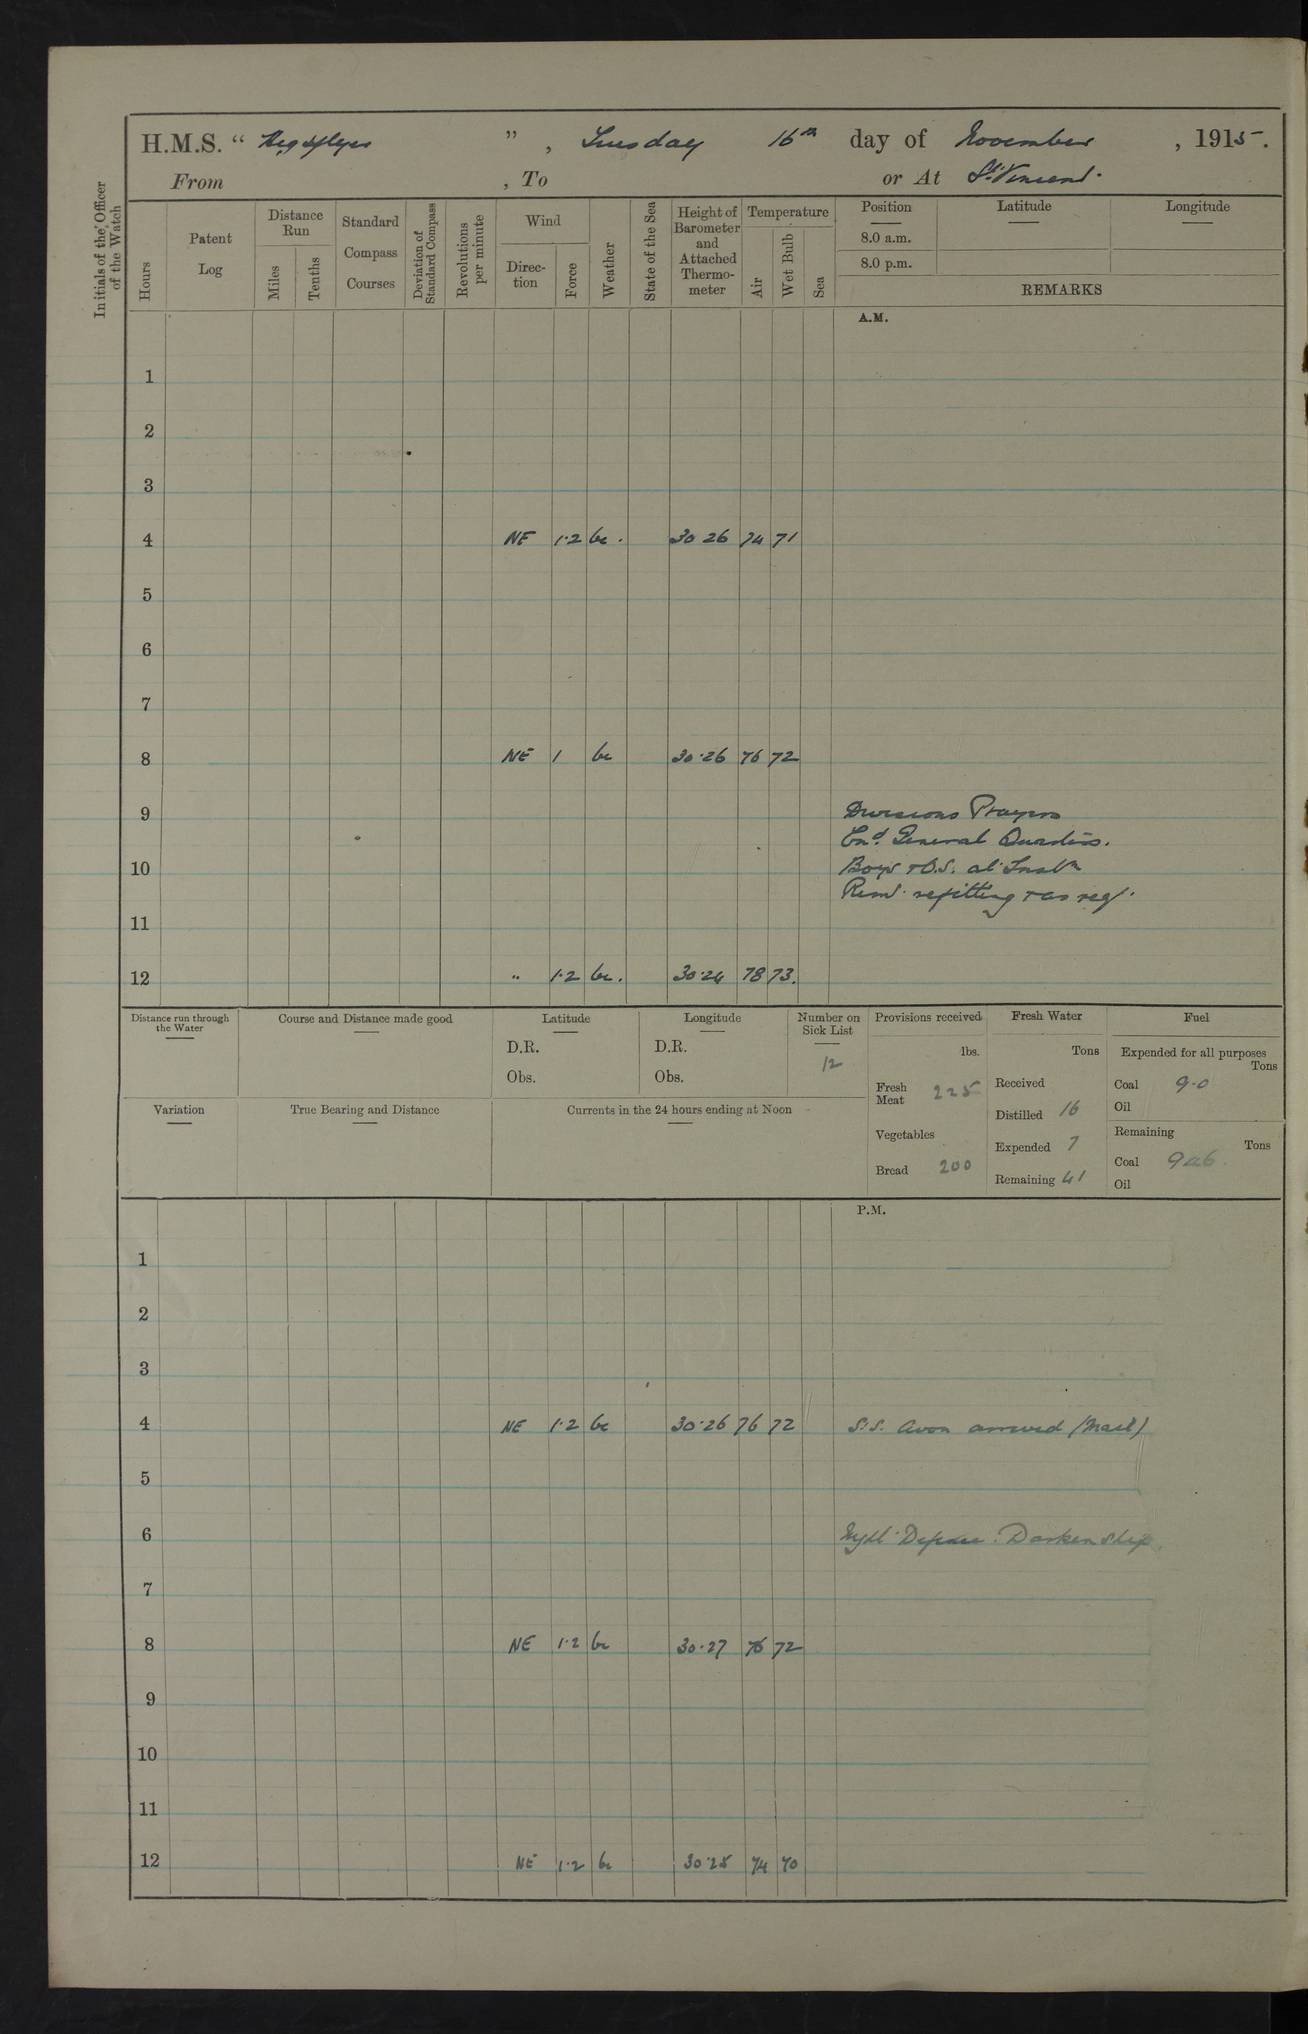 H.M.S. " Highflyer ", Tuesday 16th day of November, 1915.
From , To or At St Vincent.
Initials of the Officer of the Watch
Hours
Patent Log
Distance Run
Miles
Tenths
Standard Compass Courses
Deviation of Standard Compass
Revolutions per minute
Wind
Direction
Force
Weather
State of the Sea
Height of Barometer and Attached Thermometer
Temperature
Air
Wet Bulb
Sea
Position Latitude Longitude
8.0 a.m.
8.0 p.m.
REMARKS
A.M.
1
2
3
4 NE 1·2 bc. 30 26 74 71
5
6
7
8 NE 1 bc 30·26 76 72
9 Divisions Prayers
Exd. General Quarters.
10 Boys & O.S. at Instn
Remr refitting & as req.
11
12 " 1·2 bc. 30·24 78 73.
Distance run through the Water
Course and Distance made good
Latitude
D.R.
Obs.
Longitude
D.R.
Obs.
Number on Sick List
12
Variation
True Bearing and Distance
Currents in the 24 hours ending at Noon
Provisions received
lbs.
Fresh Meat 225
Vegetables
Bread 200
Fresh Water
Tons
Received
Distilled 16
Expended 7
Remaining 41
Fuel
Expended for all purposes
Tons
Coal 9·0
Oil
Remaining
Tons
Coal 946
Oil
P.M.
1
2
3
4 NE 1·2 bc 30·26 76 72 S.S. Avon arrived (Mail)
5
6 Night Defence. Darken ship.
7
8 NE 1·2 bc 30·27 76 72
9
10
11
12 NE 1·2 bc 30·25 74 70